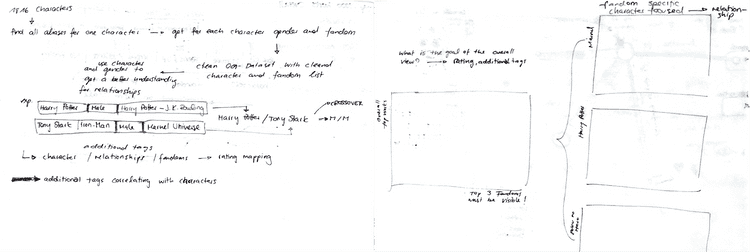 Characters
find all aliases for one character → opt for each character gender and fandom
clean Dataset with cleaned
character and fandom list
use character
and gender to
get a better understanding
for relationships
Harry Potter | Male | Harry Potter - J.K. Rowling
Tony Stark | Iron-Man | Male | Universe
Harry Potter / Tony Stark
→ CROSSOVER
→ M/M
additional tags
↳ character / relationships / fandoms → rating mapping
→ additional tags correlating with characters
What is the goal of the overall
view? → Rating, additional tags
overall
Top 3 Fandoms
must be visible!
fandom specific
character focused → relation-
ship
Marvel
Harry Potter